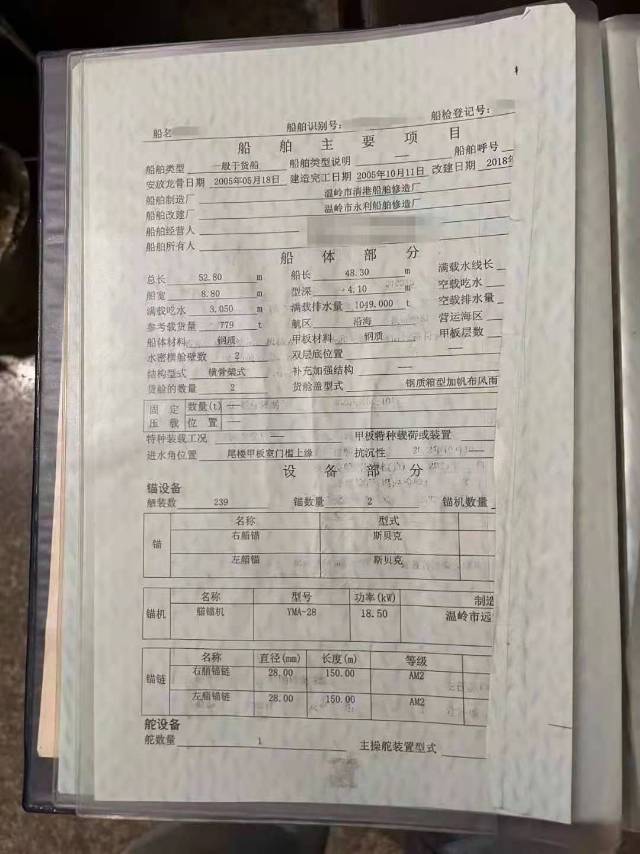 船名 船舶识别号: 船检登记号:
船舶主要项目
船舶类型 一般干货船 船舶类型说明 — 船舶呼号
安放龙骨日期 2005年05月18日 建造完工日期 2005年10月11日 改建日期 2018年
船舶制造厂 温岭市清港船舶修造厂
船舶改建厂 温岭市永利船舶修造厂
船舶经营人
船舶所有人
船体部分
总长 52.80 m 船长 48.30 m 满载水线长
船宽 8.80 m 型深 4.10 m 空载吃水
满载吃水 3.050 m 满载排水量 1049.000 t 空载排水量
参考载货量 779 t 航区 沿海 营运海区
船体材料 钢质 甲板材料 钢质 甲板层数
水密横舱壁数 2 双层底位置 —
结构型式 横骨架式 补充加强结构 —
货舱的数量 2 货舱盖型式 钢质箱型加帆布风雨
固定 数量(t) —
压载 位置 —
特种装载工况 — 甲板特种载荷或装置
进水角位置 尾楼甲板室门槛上缘 抗沉性 —
设备部分
锚设备
舾装数 239 锚数量 2 锚机数量
名称 型式
锚 右艏锚 斯贝克
左艏锚 斯贝克
名称 型号 功率(kW) 制造
锚机 艏锚机 YMA-28 18.50 温岭市远
名称 直径(mm) 长度(m) 等级
锚链 右艏锚链 28.00 150.00 AM2
左艏锚链 28.00 150.00 AM2
舵设备
舵数量 1 主操舵装置型式